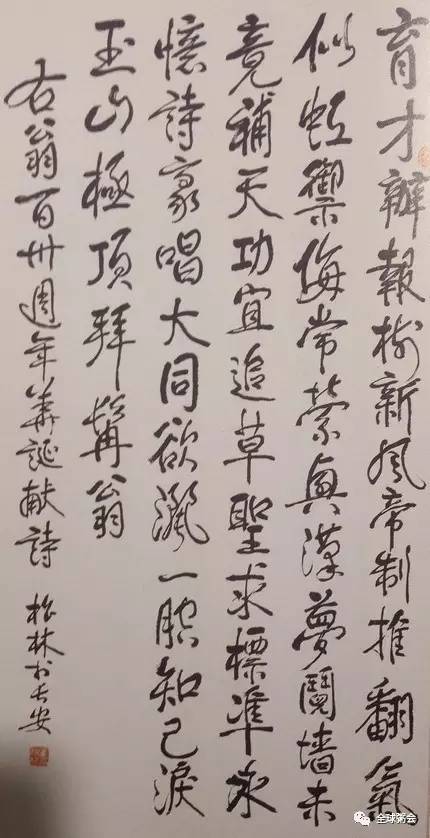 育才辦報樹新風帝制推翻氣
似虹禦侮常縈興漢夢鬩墻未
竟補天功宜追草聖求標準永
懷詩豪唱大同欲灑一腔知己淚
玉山極頂拜髯翁
右翁百卅週年華誕献詩 松林书长安
全球粥会